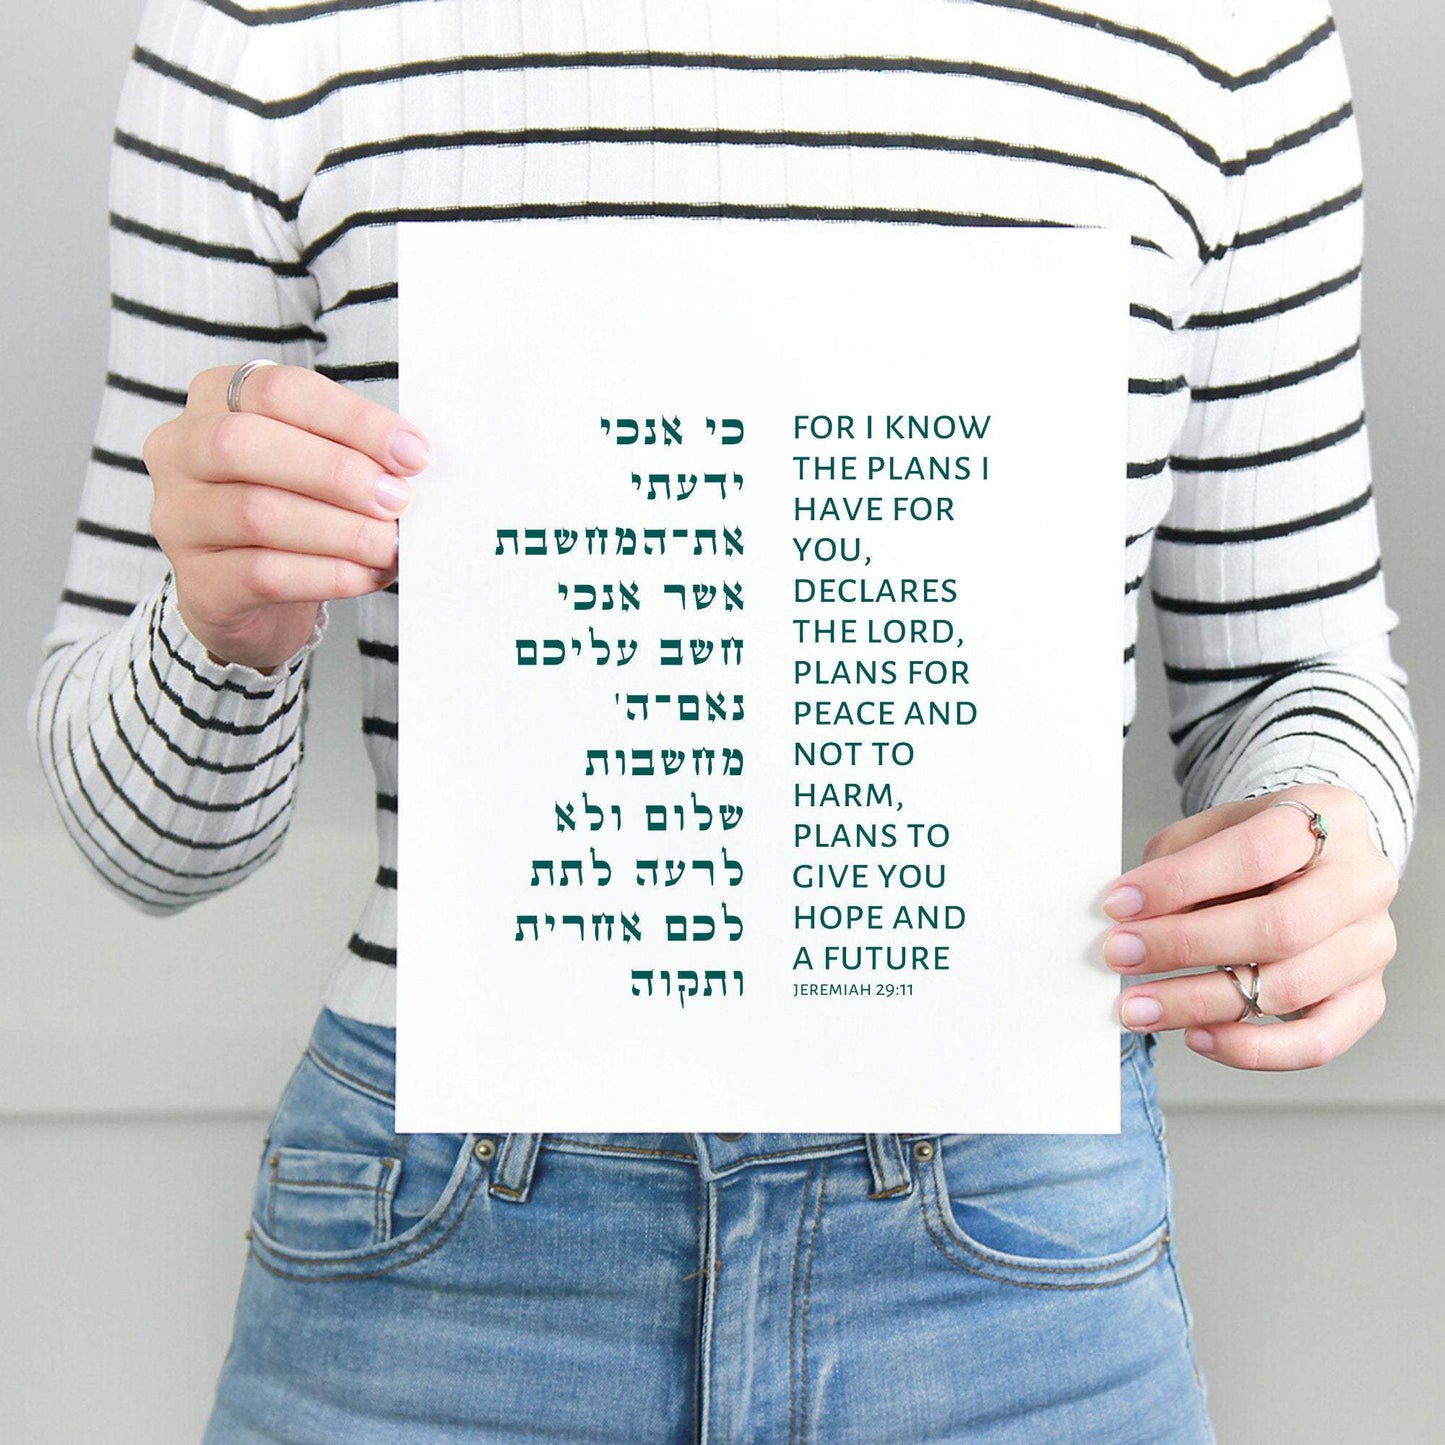 כי אנכי
ידעתי
את־המחשבת
אשר אנכי
חשב עליכם
נאם־ה'
מחשבות
שלום ולא
לרעה לתת
לכם אחרית
ותקוה
FOR I KNOW
THE PLANS I
HAVE FOR
YOU,
DECLARES
THE LORD,
PLANS FOR
PEACE AND
NOT TO
HARM,
PLANS TO
GIVE YOU
HOPE AND
A FUTURE
JEREMIAH 29:11